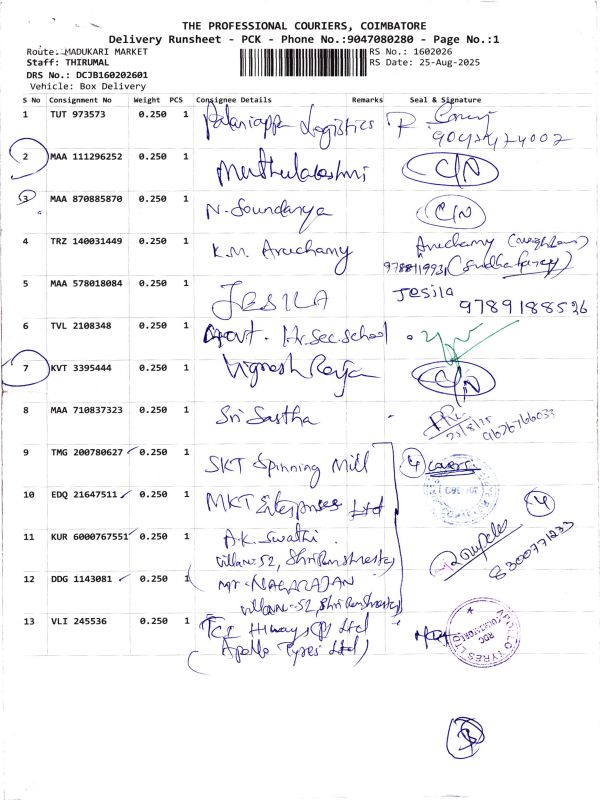 THE PROFESSIONAL COURIERS, COIMBATORE
Delivery Runsheet - PCK - Phone No.:9047080280 - Page No.:1
Route: MADUKARI MARKET
RS No.: 1602026
Staff: THIRUMAL
RS Date: 25-Aug-2025
DRS No.: DCJB160202601
Vehicle: Box Delivery
S No Consignment No Weight PCS Consignee Details Remarks Seal & Signature
1 TUT 973573 0.250 1 Palaniappa Logistics
2 MAA 111296252 0.250 1 Muthulakshmi C/N
3 MAA 870885870 0.250 1 N. Soundarya C/N
4 TRZ 140031449 0.250 1 K.M. Aruchamy Aruchamy
5 MAA 578018084 0.250 1 JESILA Jesila
9789188526
6 TVL 2108348 0.250 1 Govt. Hr.Sec.School
7 KVT 3395444 0.250 1 Vignesh Raja C/N
8 MAA 710837323 0.250 1 Sri Sastha
25/8/25
9 TMG 200780627 0.250 1 SKT Spinning Mill 4 covers
10 EDQ 21647511 0.250 1 MKT Enterprises Ltd 4
11 KUR 6000767551 0.250 1 A.K. Swathi
8300771233
12 DDG 1143081 0.250 1 Mr. NAGARAJAN
13 VLI 245536 0.250 1 TCI Hiways (P) Ltd
(Apollo Tyres Ltd)
APOLLO TYRES LTD